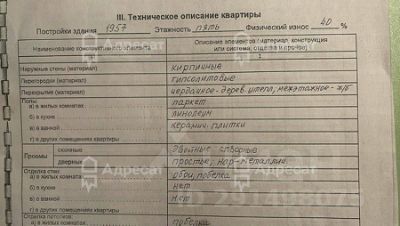 III. Техническое описание квартиры
Постройки здания 1957 Этажность пять Физический износ 40 %
Наименование конструктивного элемента
Описание элементов (материал, конструкция или система, отделка и прочее)
1 2
Наружные стены (материал) кирпичные
Перегородки (материал) гипсолитовые
Перекрытие (материал) чердачное-дерев. утепл., межэтажное-ж/б
Полы:
а) в жилых комнатах паркет
б) в кухне линолеум
в) в ванной керамич. плитки
г) в других помещениях квартиры
Проемы оконные двойные створные
дверных простые, нар-металлич.
Отделка стен:
а) в жилых комнатах обои, побелка
б) в кухне нет
в) в ванной нет
г) в других помещениях квартиры
Отделка потолков:
а) в жилых комнатах побелка
Адресат